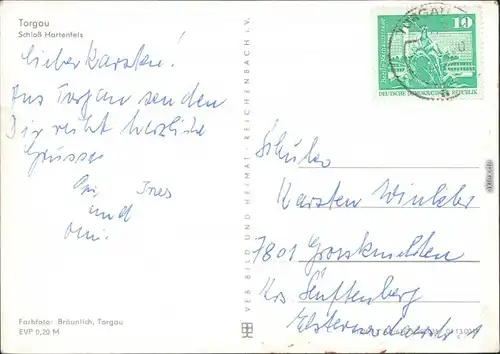 Torgau
Schloß Hartenfels
Lieber Karsten!
Aus Torgau senden
Dir recht herzliche
Grüsse
Opi, Ines
und
Omi.
Farbfoto: Bräunlich, Torgau
EVP 0,20 M
VEB BILD UND HEIMAT · REICHENBACH i. V.
TORGAU
10
DEUTSCHE DEMOKRATISCHE REPUBLIK
Schüler
Karsten Winkler
7801 Grosskmehlen
Krs Senftenberg
Elsterwerdaerstr. 1